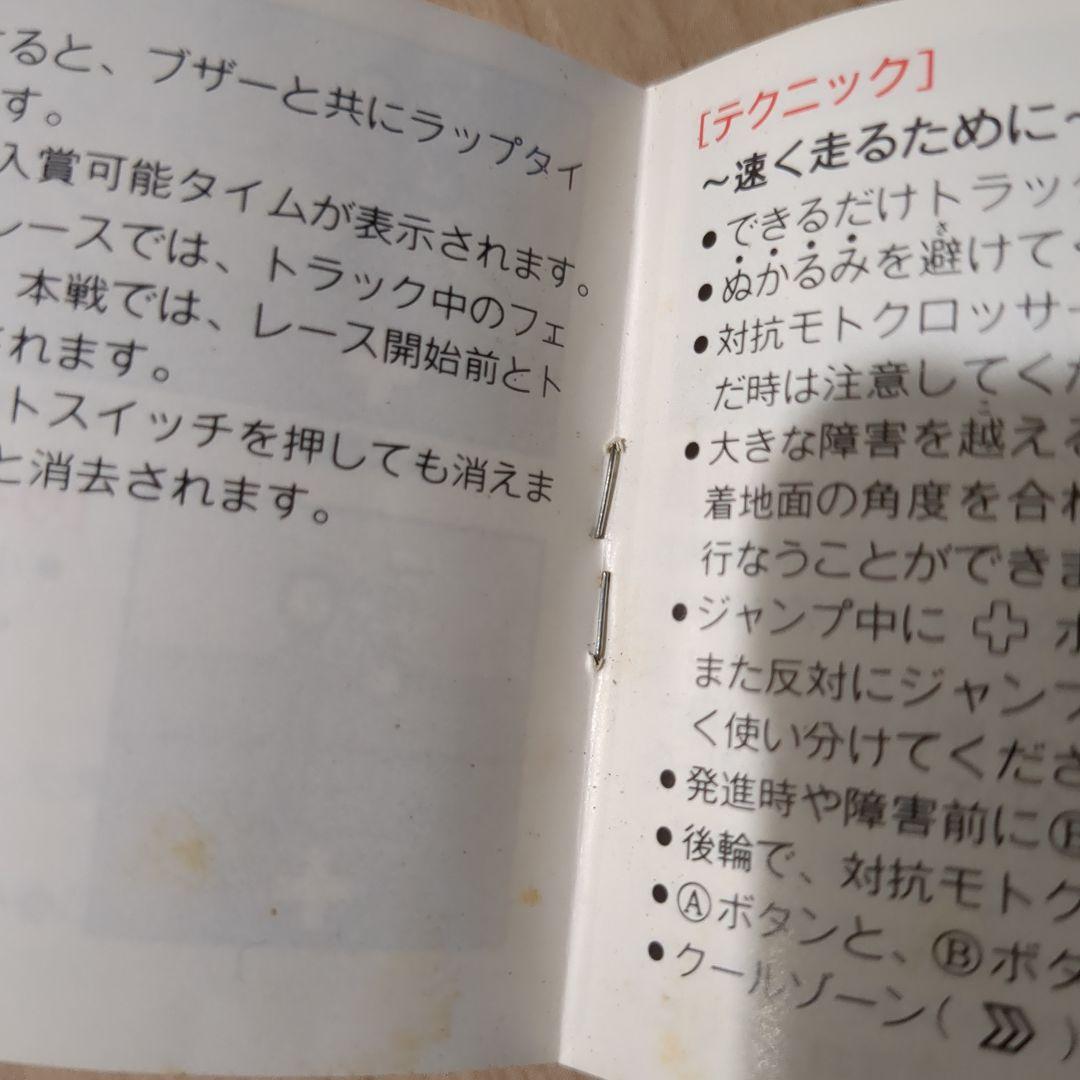 すると、ブザーと共にラップタイ
す。
入賞可能タイムが表示されます。
レースでは、トラック中のフェ
本戦では、レース開始前とト
されます。
トスイッチを押しても消えま
と消去されます。
[テクニック]
～速く走るために～
●できるだけトラック
●ぬかるみを避けてく
●対抗モトクロッサー
だ時は注意してくだ
●大きな障害を越える
着地面の角度を合わ
行なうことができま
●ジャンプ中に ✚ ボ
また反対にジャンプ
く使い分けてくださ
●発進時や障害前にⒷ
●後輪で、対抗モトク
●Ⓐボタンと、Ⓑボタ
●クールゾーン( )